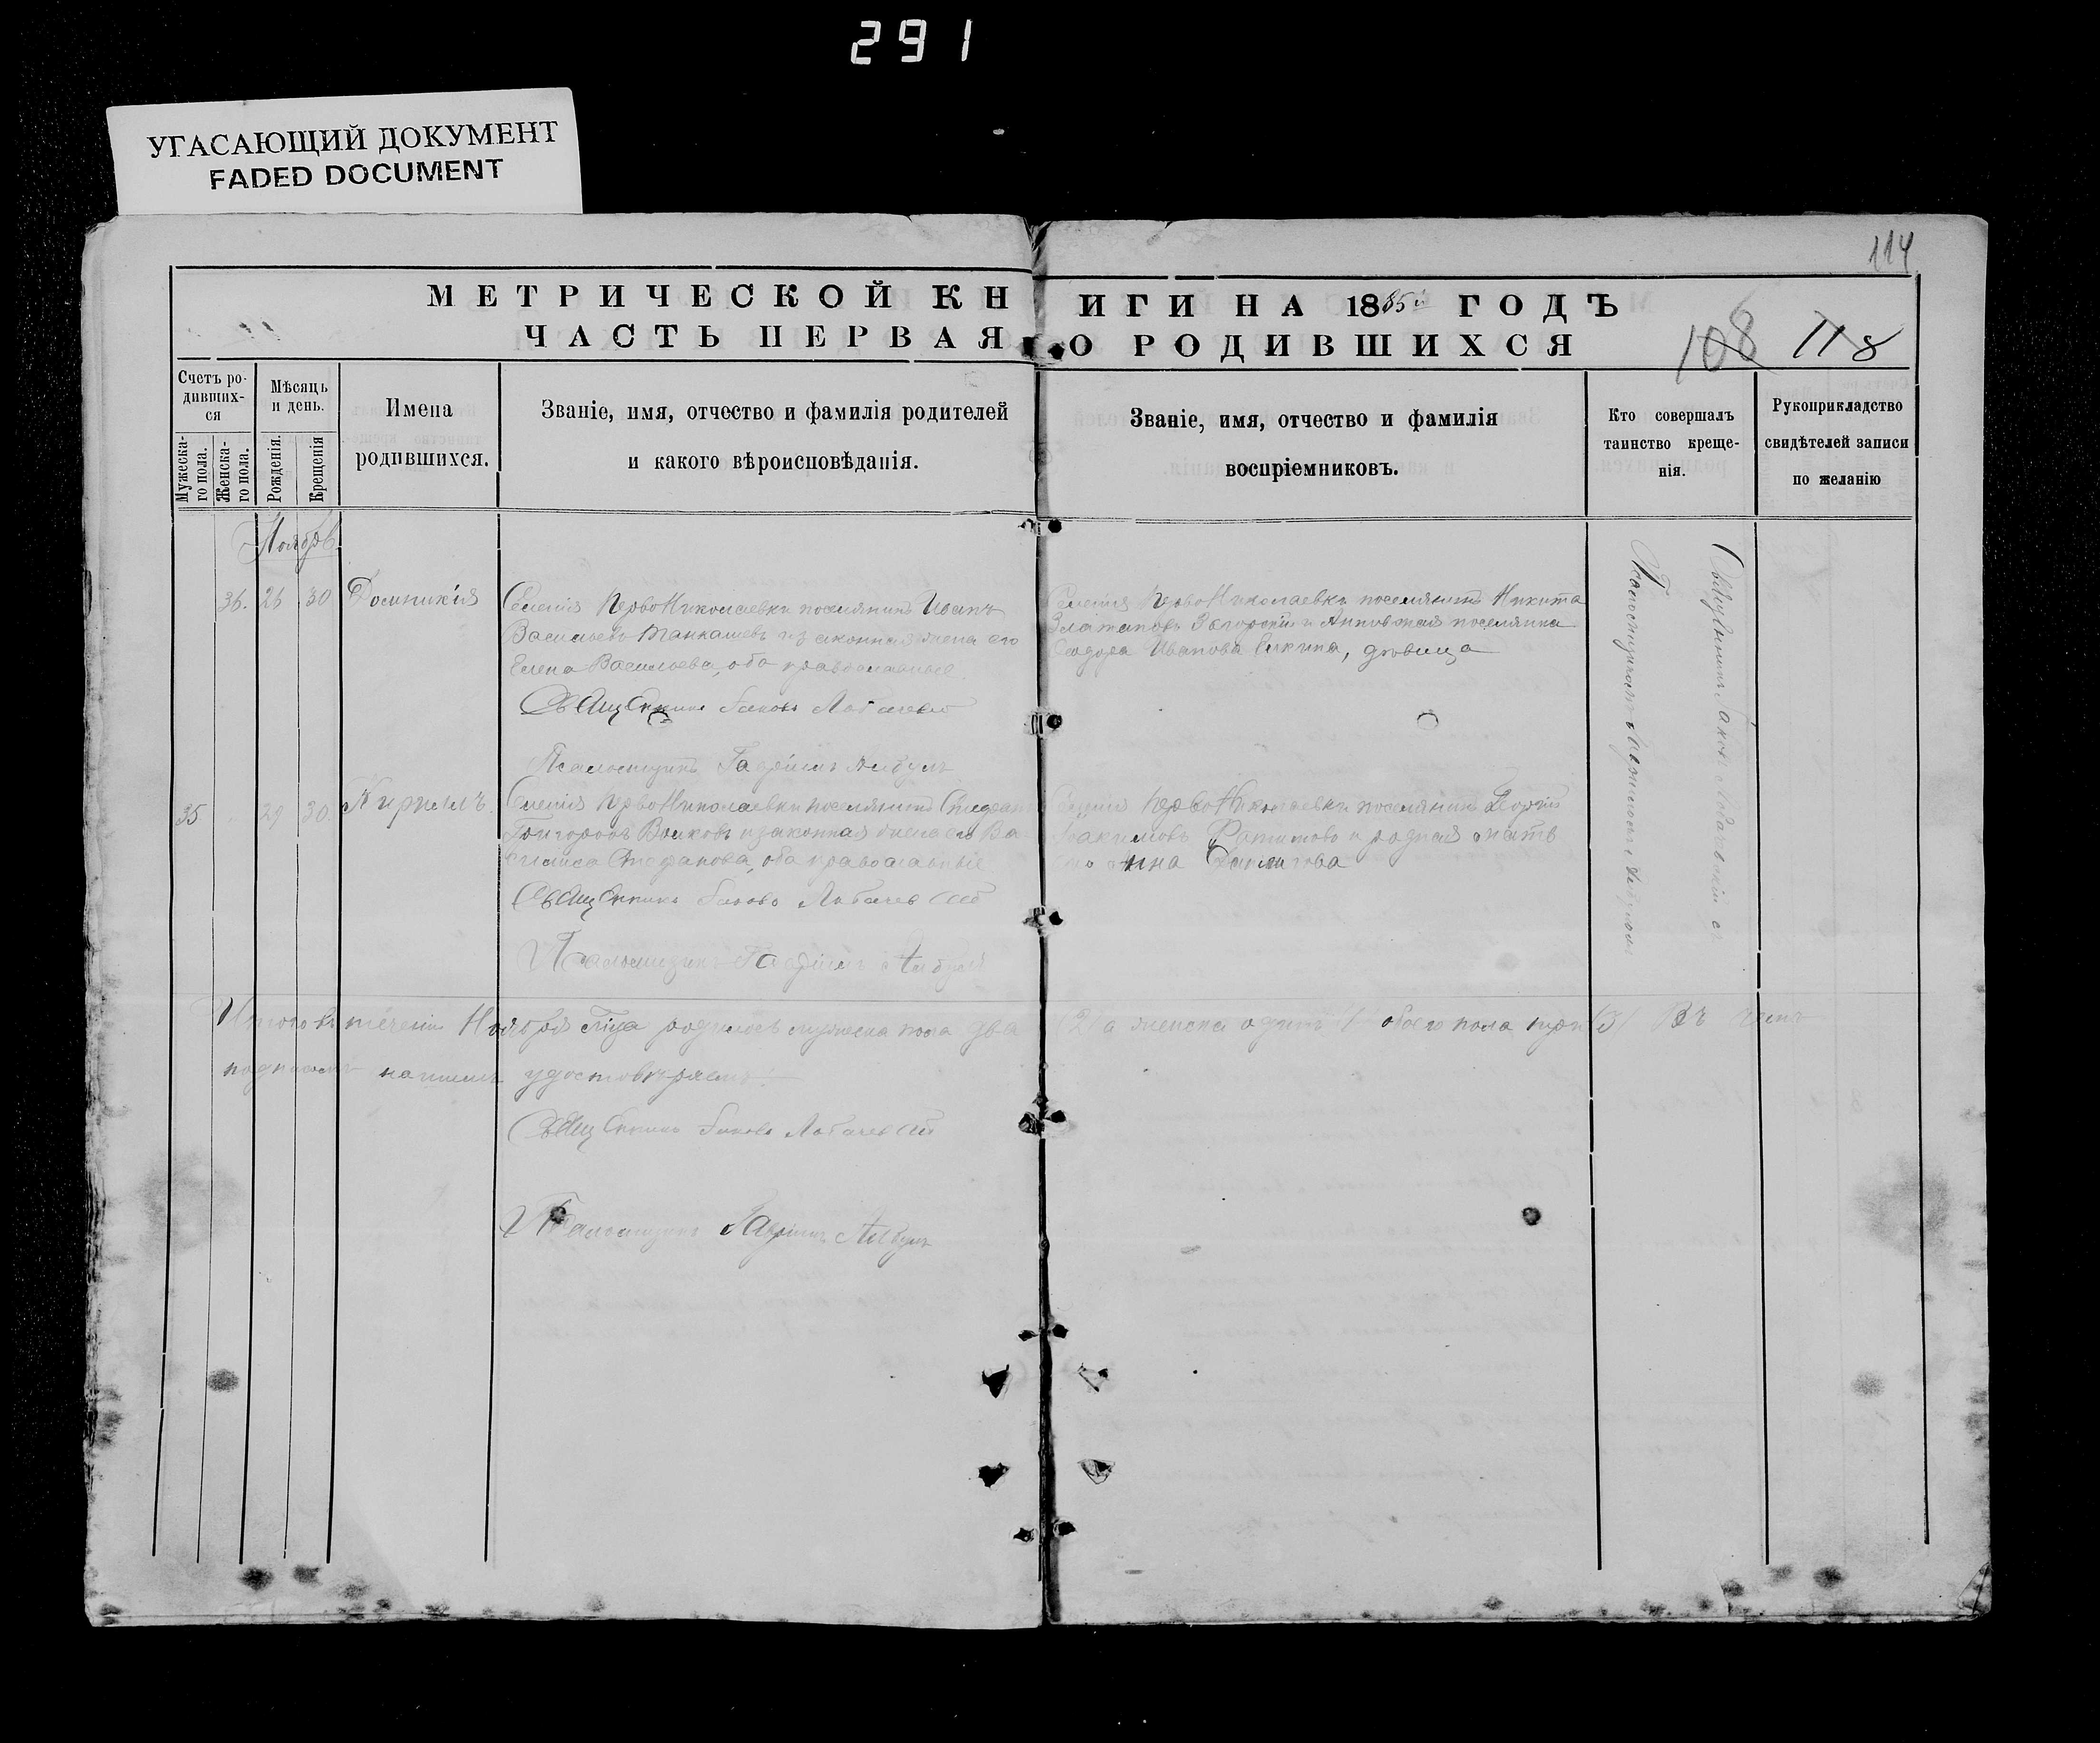 291
УГАСАЮЩИЙ ДОКУМЕНТ
FADED DOCUMENT
114
МЕТРИЧЕСКОЙ КНИГИ НА 1885й ГОДЪ
ЧАСТЬ ПЕРВАЯ О РОДИВШИХСЯ
108 118
Счетъ родившихся
Мужескаго пола.
Женскаго пола.
Мѣсяцъ и день.
Рожденія.
Крещенія
Имена родившихся.
Званіе, имя, отчество и фамилія родителей
и какого вѣроисповѣданія.
Званіе, имя, отчество и фамилія
воспріемниковъ.
Кто совершалъ
таинство креще-
нія.
Рукоприкладство
свидѣтелей записи
по желанію
Ноябрь
36. 26 30 Домникія
Селенія ПервоНиколаевки поселянинъ Иванъ
Васильевъ и законная жена его
Елена Васильева, оба православные
Священникъ Іаковъ Лобачевскій
Псаломщикъ Гавріилъ
Селенія ПервоНиколаевки поселянинъ Никита
Загорскій и поселянка
Иванова дѣвица
35 29 30 Кириллъ
Селенія ПервоНиколаевки поселянинъ Стефанъ
Григоровъ Волковъ и законная жена его Ва-
силиса Стефанова, оба православные
Священникъ Іаковъ Лобачевскій
Псаломщикъ Гавріилъ
Селенія ПервоНиколаевки поселянинъ Георгій
и родная мать
его Анна
Священникъ Іаковъ Лобачевскій съ
Псаломщикомъ
Итого въ теченіи Ноября м͠ца родилось мужеска пола два /2/ а женска одинъ /1/ обоего пола три /3/ Въ чемъ
подписомъ нашимъ удостовѣряемъ:
Священникъ Іаковъ Лобачевскій
Псаломщикъ Гавріилъ